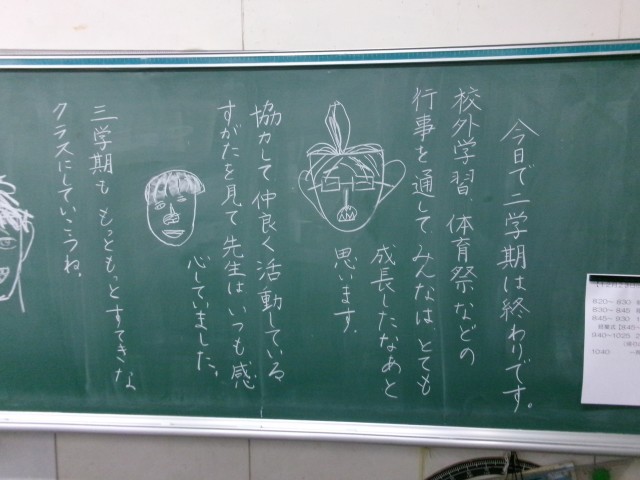 今日で二学期は終わりです。
校外学習、体育祭などの
行事を通してみんなは、とても
成長したなあと
思います
協力して仲良く活動している
すがたを見て先生はいつも感
心していました。
三学期も もっともっとすてきな
クラスにしていこうね。
820～ 830
830～ 845
845～ 930
940～1025
1040